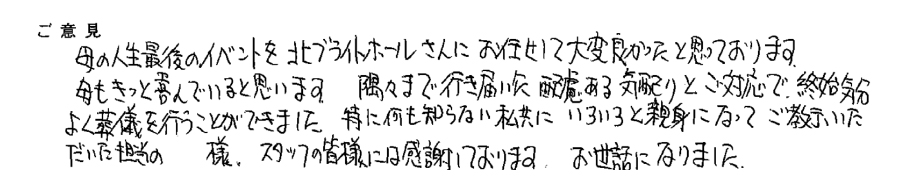 ご意見
母の人生最後のイベントを北ブライトホールさんにお任せして大変良かったと思っております
母もきっと喜んでいると思います 隅々まで行き届いた配慮ある気配りとご対応で終始気分
よく葬儀を行うことができました 特に何も知らない私共にいろいろと親身になってご教示いた
だいた担当の 様、スタッフの皆様には感謝しております。お世話になりました。